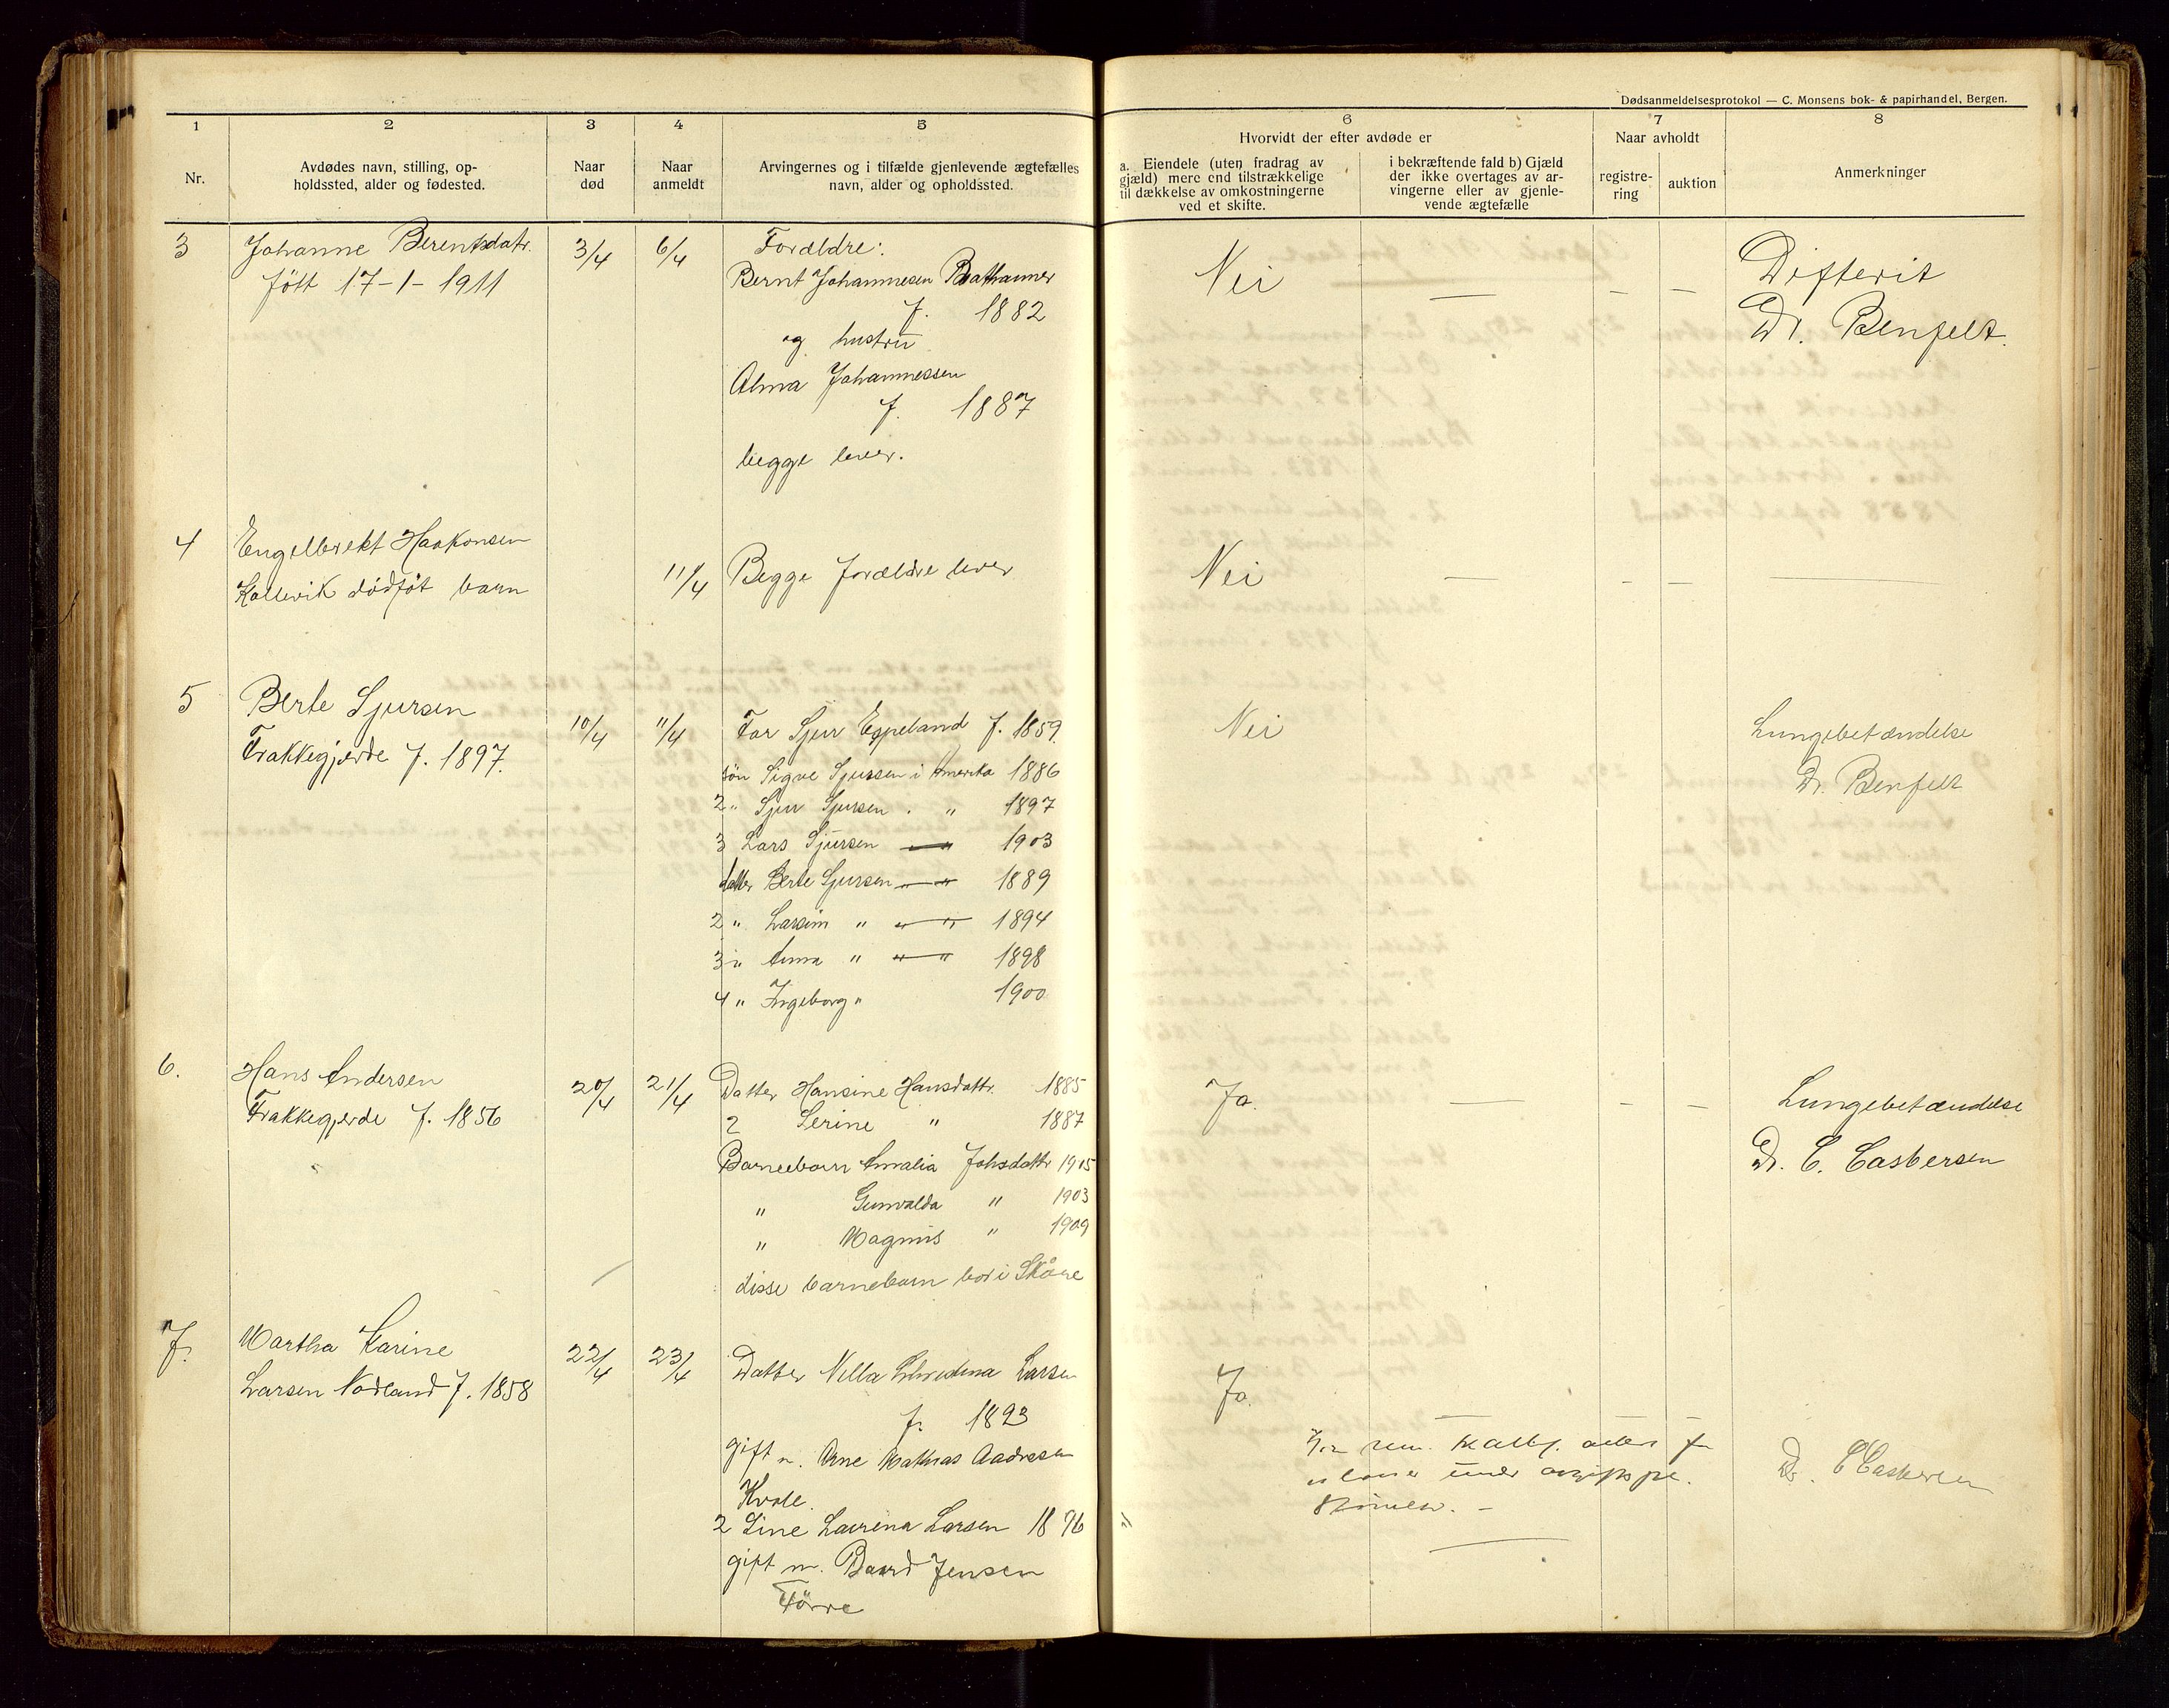 Dødsanmeldelsesprotokol — C. Monsens bok- & papirhandel, Bergen.
1 2 3 4 5 6 7 8
Nr.
Avdødes navn, stilling, op-
holdssted, alder og fødested.
Naar
død
Naar
anmeldt
Arvingernes og i tilfælde gjenlevende ægtefælles
navn, alder og opholdssted.
Hvorvidt der efter avdøde er
a. Eiendele (uten fradrag av
gjæld) mere end tilstrækkelige
til dækkelse av omkostningerne
ved et skifte.
i bekræftende fald b) Gjæld
der ikke overtages av ar-
vingerne eller av gjenle-
vende ægtefælle
Naar avholdt
registre-
ring
auktion
Anmerkninger
3
Johanne Berentsdatr.
født 17-1-1911
3/4
6/4
Forældre:
Bernt Johannesen
f. 1882
og hustru
Alma Johannessen
f. 1887
begge lever.
Nei
— — —
Difterit
Dr. Benfelt.
4
Engelbrekt Haakonsen
Kallevik dødføt barn
11/4
Begge forældre lever
Nei
— — — —
5
Berte Sjursen
Frakkegjerde f. 1897.
10/4
11/4
Far Sjur Eppeland f. 1859.
søn Sigve Sjursen i Amerika 1886
2 " Sjur Sjursen " " 1897
3 Lars Sjursen — " 1903
datter Berte Sjursen " — " 1889
2 " " " — " 1894
3 " Anna " " — " 1898
4 " Ingeborg " 1900
Nei
Lungebetændelse
Dr. Benfelt
6.
Hans Andersen
Frakkegjerde f. 1856
20/4
21/4
Datter Hansine Hansdattr. 1885
2 Serine " 1887
Barnebarn Amalia Johsdattr 1905
" Gunvalda " 1903
" Magnus " 1909
disse barnebarn bor i Skåre
Ja.
— — —
Lungebetændelse
Dr. C. Casbersen
7.
Martha Karine
Larsen Nodland f. 1858
22/4
23/4
Datter Nella Larsen
f. 1893
gift m. Arne Mathias
Kvale.
2 Sine Laurena Larsen 1896
gift m. Baard Jensen
Førre
Ja.
— — —
Dr. C Casbersen